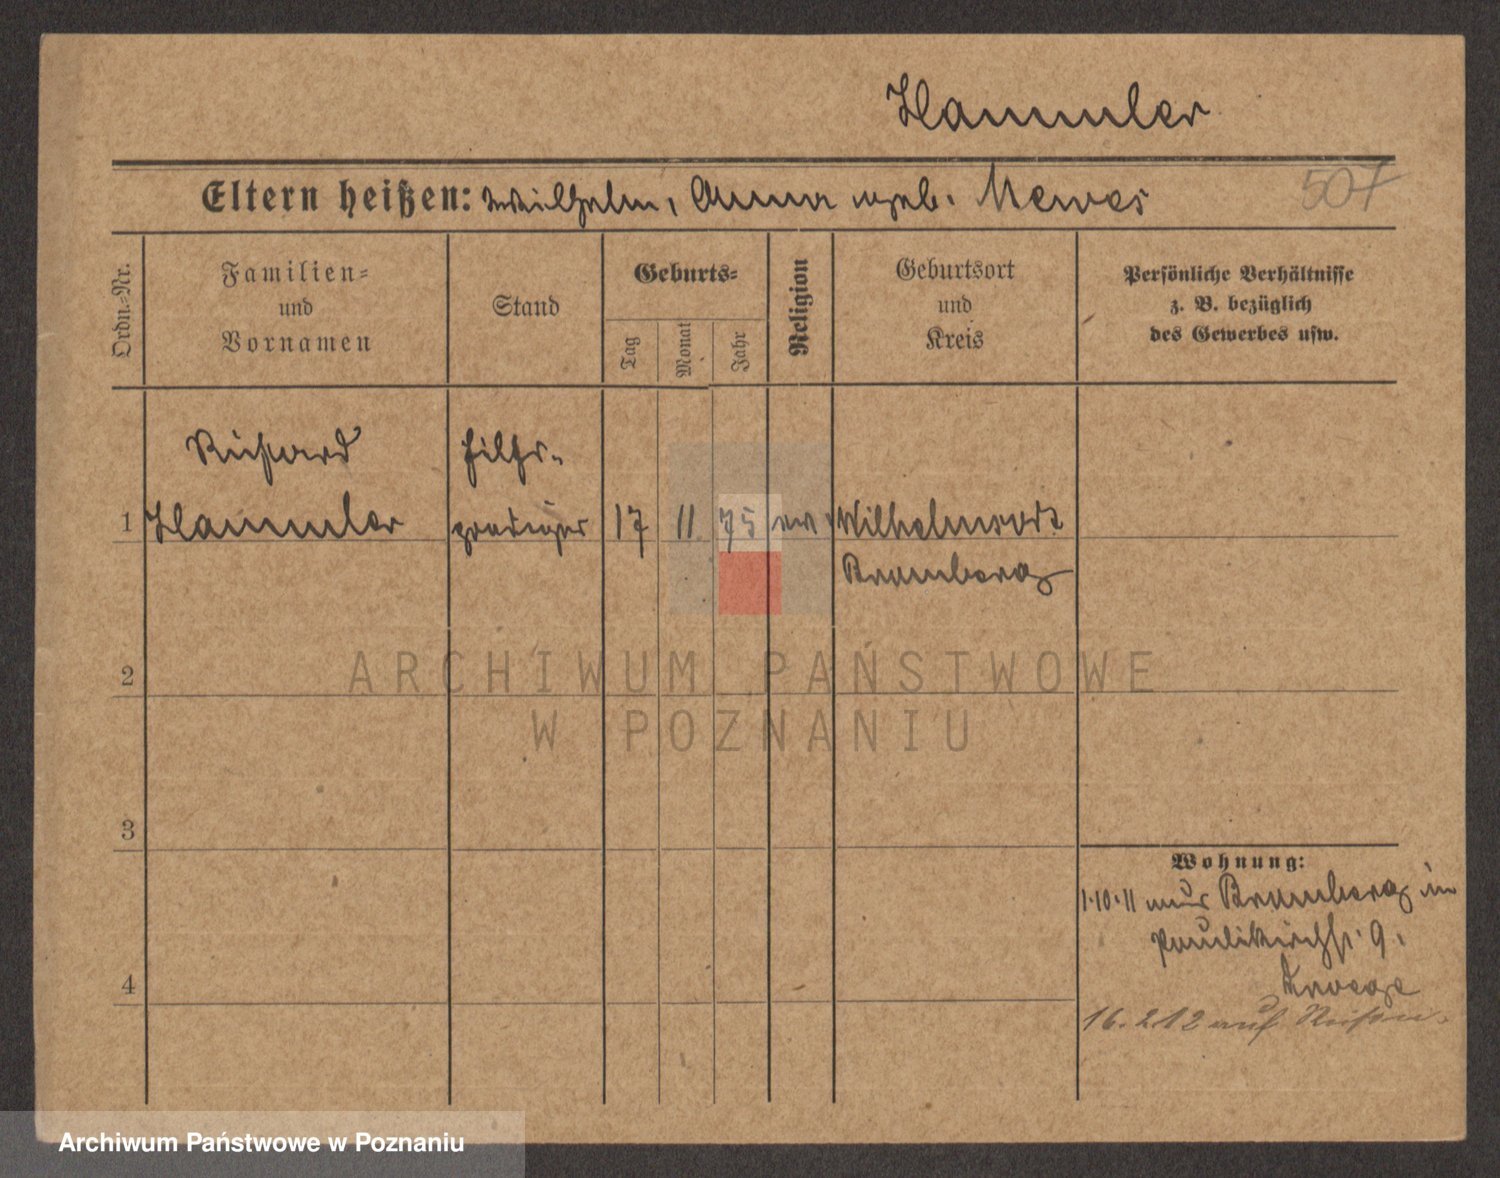 Hammler
Eltern heißen: Wilhelm, Anna geb. Mewes
507
Ordn.=Nr.
Familien=
und
Vornamen
Stand
Geburts=
Tag
Monat
Jahr
Religion
Geburtsort
und
Kreis
Persönliche Verhältnisse
z. B. bezüglich
des Gewerbes usw.
Richard
Hilfs-
1 Hammler prediger 17 11 75 ev Wilhelmsort
Bromberg
2
3
4
Wohnung:
1.10.11 aus Bromberg in
Paulikirchstr. 9.
16.2.12 auf Reisen.
ARCHIWUM PAŃSTWOWE
W POZNANIU
Archiwum Państwowe w Poznaniu